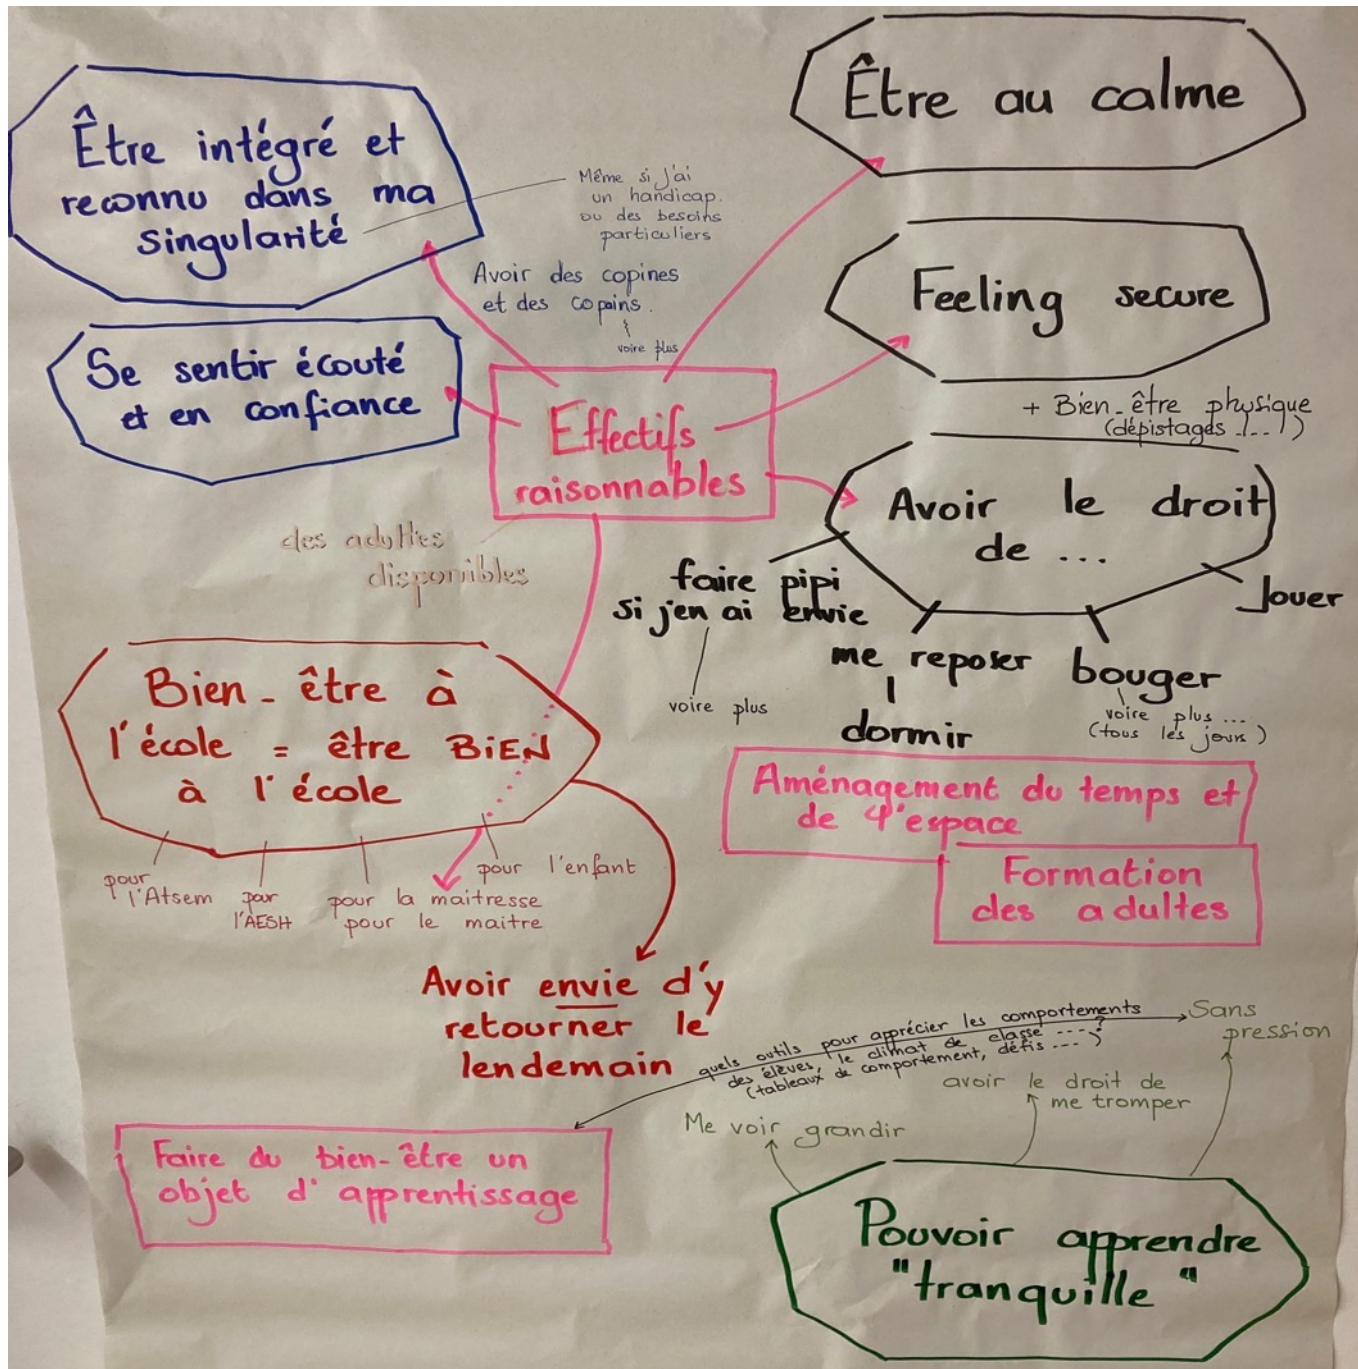 Être intégré et
reconnu dans ma
singularité
Même si j'ai
un handicap.
ou des besoins
particuliers
Avoir des copines
et des copains.
voire plus
Se sentir écouté
et en confiance
Être au calme
Feeling secure
+ Bien-être physique
(dépistages /...)
Effectifs
raisonnables
des adultes
disponibles
Avoir le droit
de ...
faire pipi
si j'en ai envie
voire plus
me reposer
dormir
bouger
voire plus ...
(tous les jours)
Jouer
Bien-être à
l'école = être BIEN
à l'école
pour
l'Atsem
pour
l'AESH
pour la maitresse
pour le maitre
pour l'enfant
Avoir envie d'y
retourner le
lendemain
Aménagement du temps et
de l'espace
Formation
des adultes
quels outils pour apprécier les comportements
des élèves, le climat de classe ---?
(tableaux de comportement, défis ---)
Sans
pression
avoir le droit de
me tromper
Me voir grandir
Faire du bien-être un
objet d'apprentissage
Pouvoir apprendre
"tranquille"